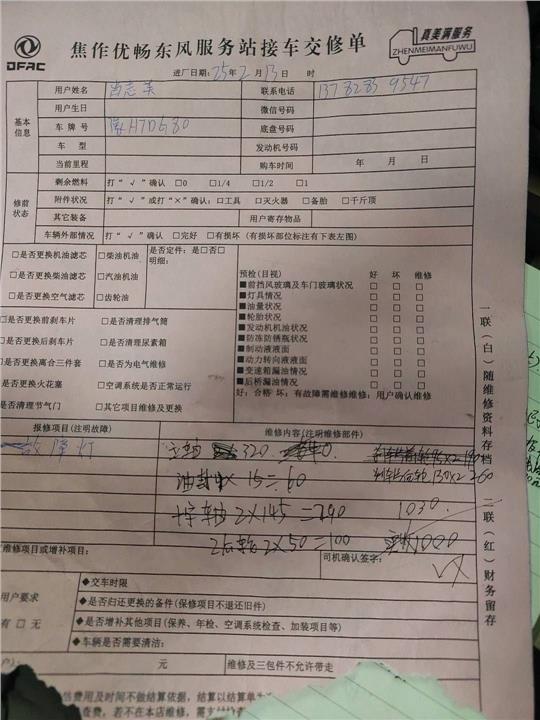 DFAC
焦作优畅东风服务站接车交修单
真美满服务
ZHENMEIMANFUWU
进厂日期：25年2月13日 时
基本信息
用户姓名 联系电话
用户生日 微信号码
车牌号 豫H7DG80 底盘号码
车型 发动机号码
当前里程 购车时间 年 月 日
修前状态
剩余燃料 打“√”确认 □0 □1/4 □1/2 □1
附件状况 打“√”或打“×”确认：□工具 □灭火器 □备胎 □千斤顶
其它装备 用户寄存物品
车辆外部情况 打“√”确认 □完好 □有损坏（有损坏部位标注有下表左图）
□是否更换机油滤芯 □柴油机油 是否定件：是□否□
□是否更换柴滤芯 □汽油机油 明细：
□是否更换空气滤芯 □齿轮油
□是否更换前刹车片 □是否清理排气筒
□是否更换后刹车片 □是否清理尿素箱
□是否更换离合三件套 □是否为电气维修
是否更换火花塞 □空调系统是否正常运行
是否清理节气门 □其它项目维修及更换
预检（目视） 好 坏 维修
■前挡风玻璃及车门玻璃状况 □ □ □
■灯具情况 □ □ □
■油量状况 □ □ □
■轮胎状况 □ □ □
■发动机机油状况 □ □ □
■防冻防锈瓶状况 □ □ □
■制动液液面 □ □ □
■动力转向液液面 □ □ □
■变速箱漏油情况 □ □ □
■后桥漏油情况 □ □ □
好：合格 坏：有故障需维修维修：用户确认维修
报修项目（注明故障） 维修内容（注明维修部件）
故障灯 320
油封4×15=60
十字轴2×145=290 1030
2×50=100 1000
维修项目或增补项目： 司机确认签字：
用户要求
有 □ 无
◆交车时限
◆是否归还更换的备件（保修项目不退还旧件）
◆是否增补其他项目（保养、年检、空调系统检查、加装项目等）
◆车辆是否需要清洁：
元 维修及三包件不允许带走
估费用及时间不做结算依据，结算以结算单为
查费，若不在本店维修，需支付
一联（白）随维修资料存档
二联（红）财务留存